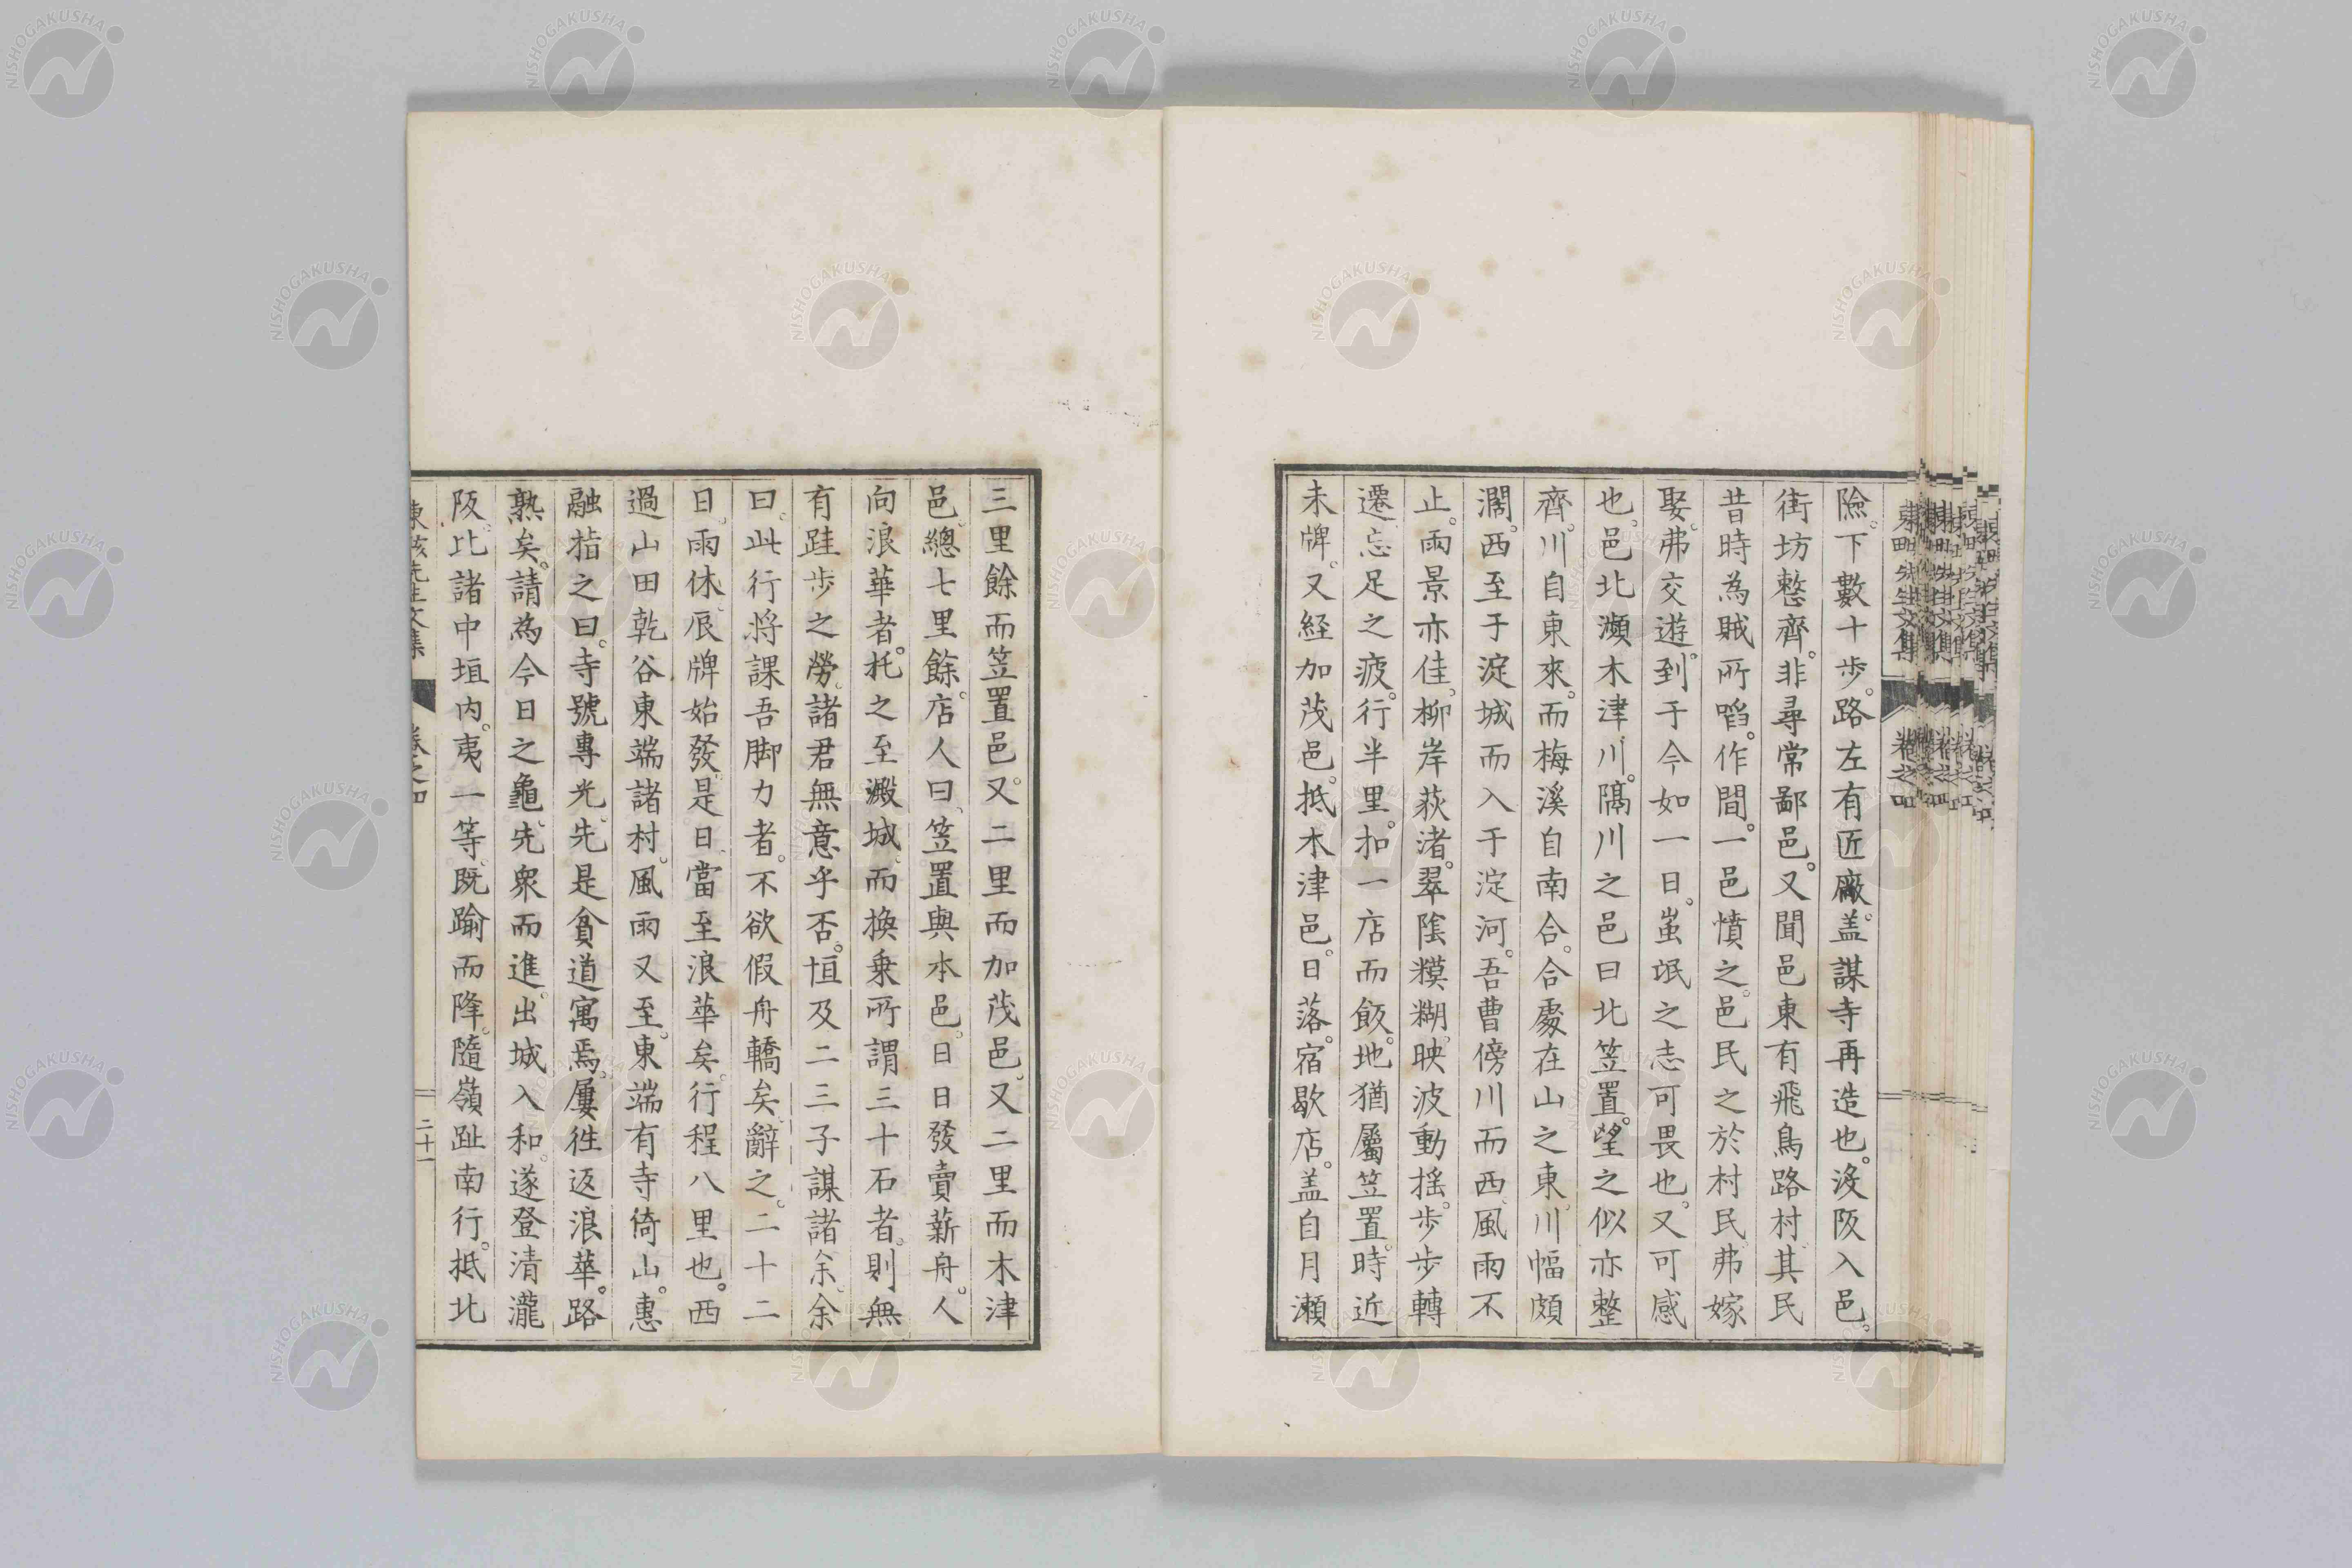 險。下數十步。路左有匠廠。盖謀寺再造也。沒阪入邑。
街坊整齊。非尋常鄙邑。又聞邑東有飛鳥路村其民
昔時為賊所啗。作間。一邑憤之。邑民之於村民弗嫁
娶。弗交遊。到于今如一日。蚩氓之志可畏也。又可感
也。邑北瀕木津川。隔川之邑曰北笠置。望之似亦整
齊。川自東來。而梅溪自南合。合處在山之東。川幅頗
濶。西至于淀城而入于淀河。吾曹傍川而西。風雨不
止。雨景亦佳。柳岸荻渚。翠陰糢糊。映波動搖。步步轉
遷。忘足之疲。行半里。扣一店而飯。地猶屬笠置。時近
未牌。又経加茂邑。抵木津邑。日落。宿歇店。盖自月瀨
三里餘而笠置邑。又二里而加茂邑。又二里而木津
邑。總七里餘。店人曰、笠置與本邑。日日發賣薪舟。人
向浪華者。托之至澱城。而換乗所謂三十石者。則無
有跬步之勞。諸君無意乎否。恒及二三子謀諸余。余
曰。此行將課吾脚力者。不欲假舟轎矣。辭之。二十二
日。雨休。辰牌始發。是日當至浪華矣。行程八里也。西
過山田乾谷東端諸村。風雨又至。東端有寺倚山。惠
融指之曰。寺號專光。先是貧道寓焉。屢徃返浪華。路
熟矣。請為今日之龜。先衆而進。出城入和。遂登清瀧
阪。比諸中垣內。夷一等。既踰而降。隨嶺趾南行。抵北
東陔先生文集 卷之四 二十一